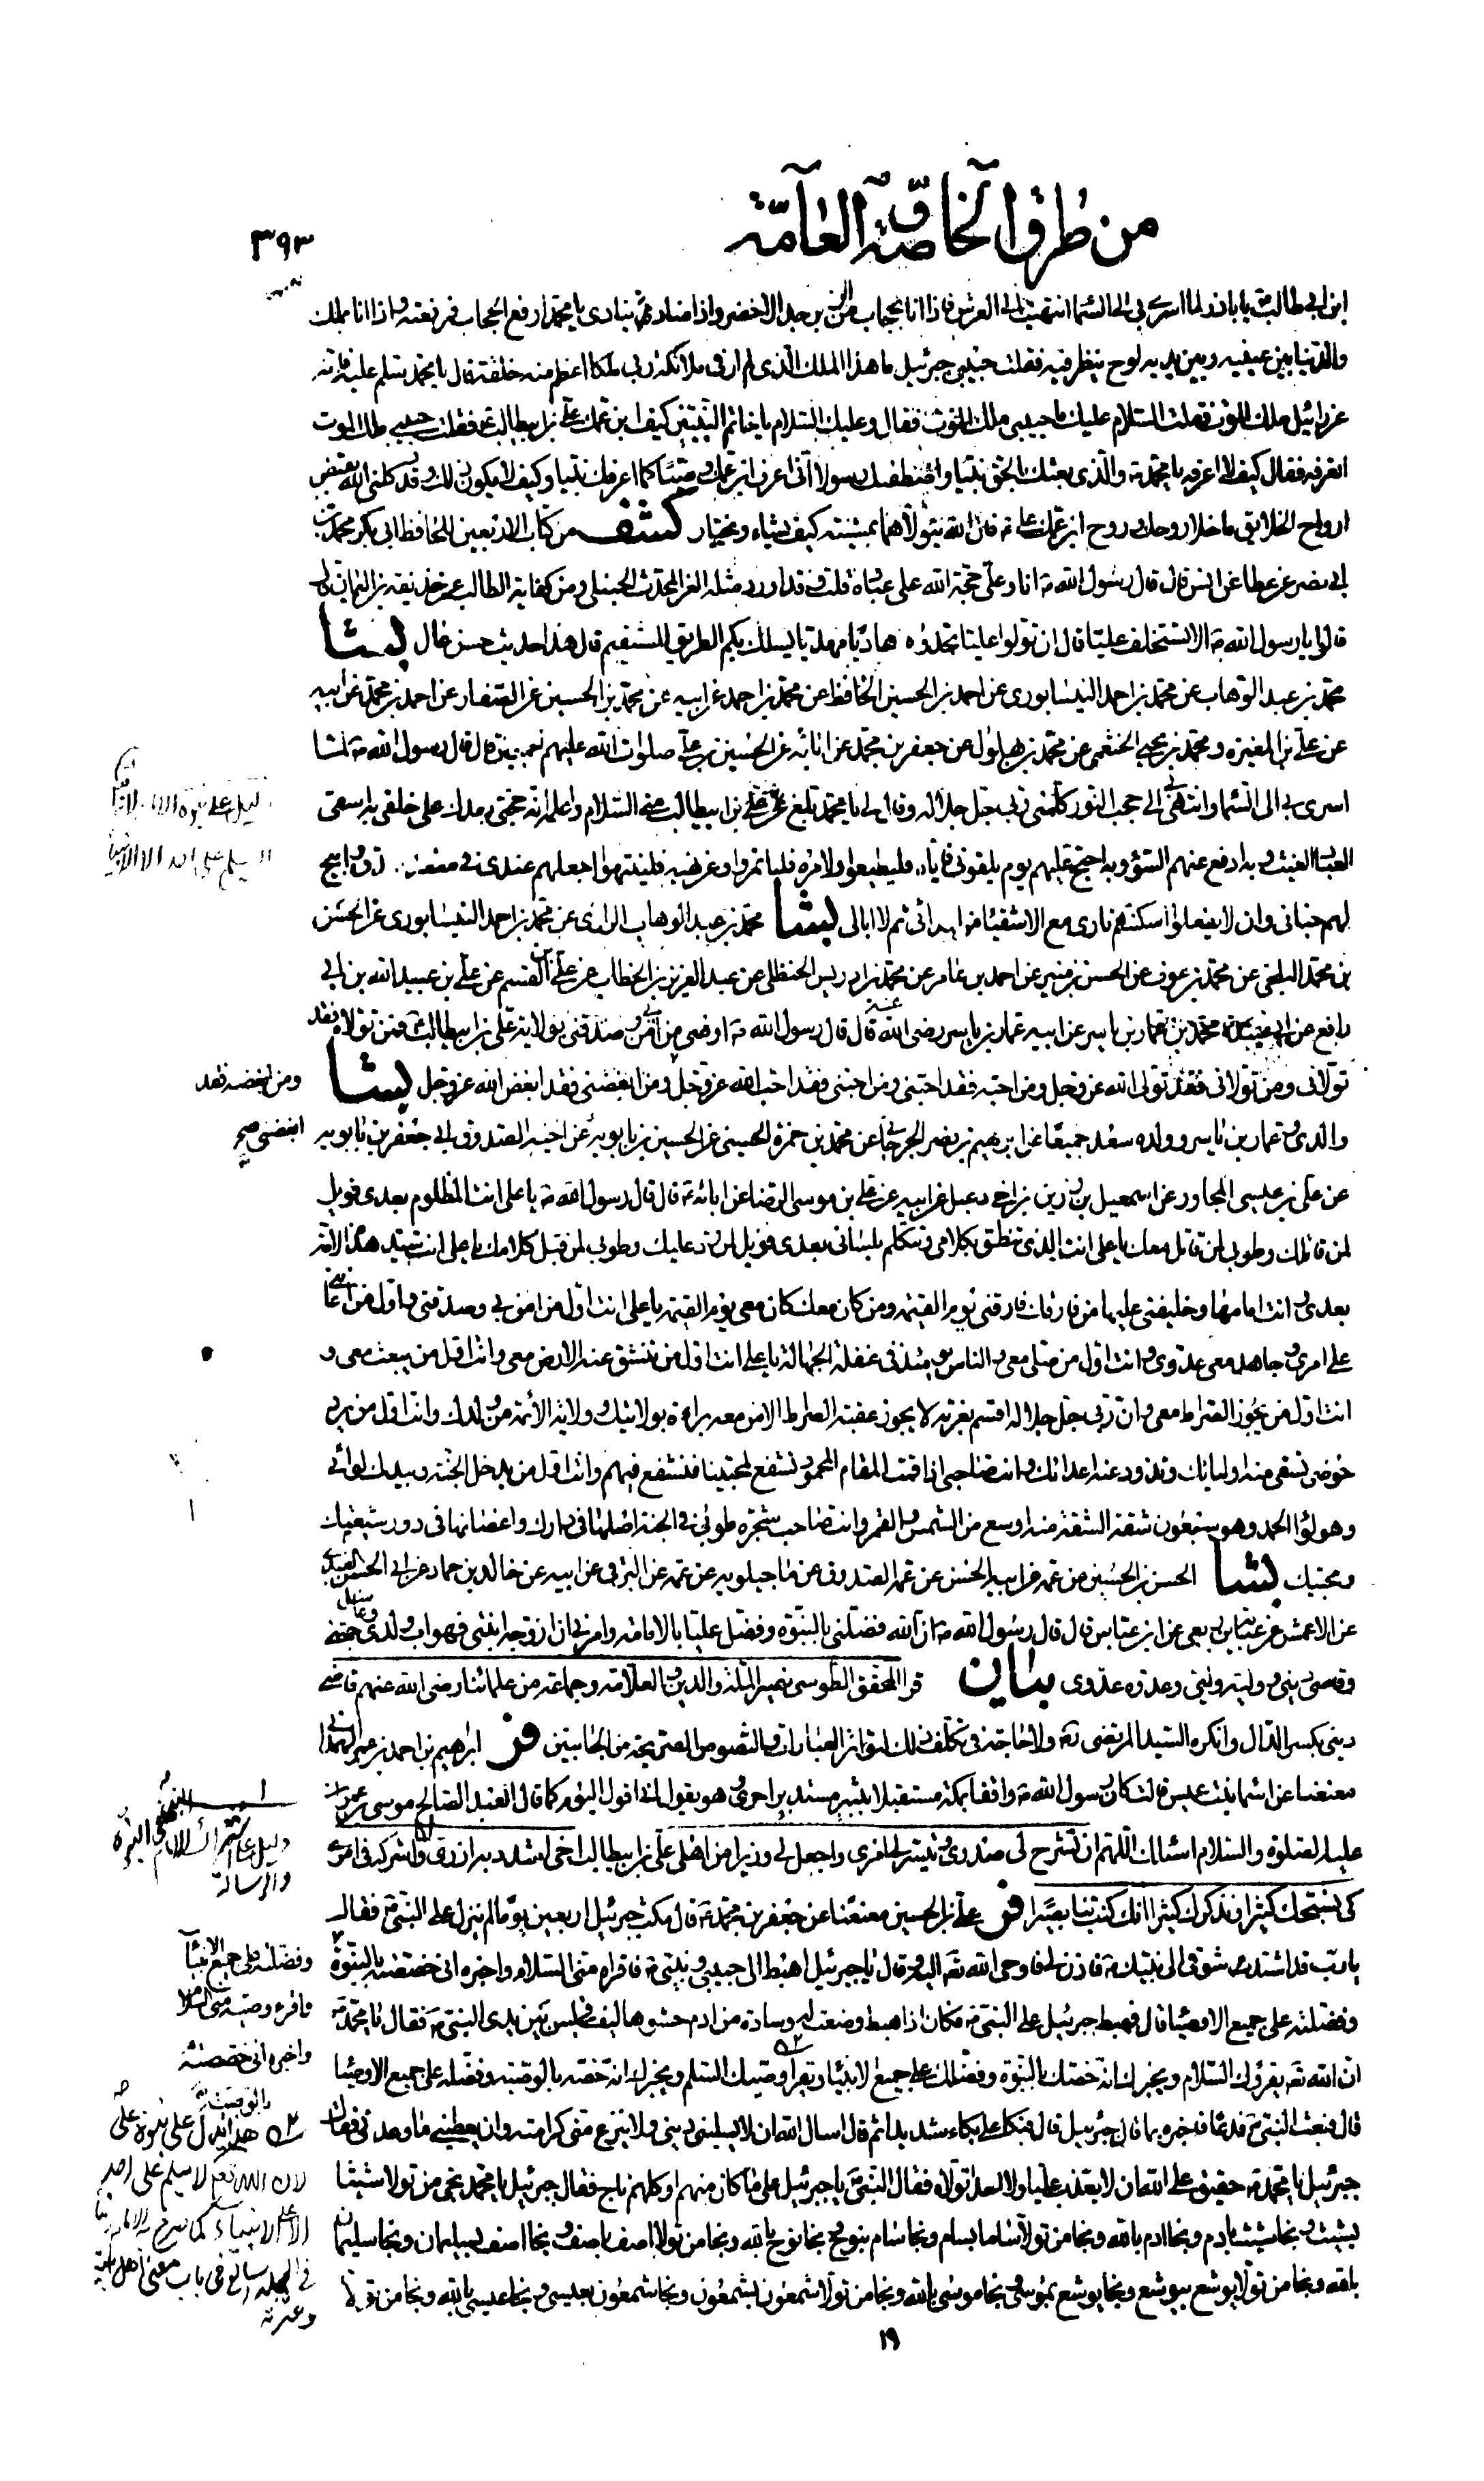 من طرق الخاصة والعامة
٣٩٣
ابن ابي طالب يا باذر لما اسري بي الى السماء انتهيت الى العرش فاذا انا بحجاب من الزبرجد الاخضر واذا مناد ينادي يا محمد ارفع الحجاب فرفعته واذا انا بملك
والدنيا بين عينيه وبين يديه لوح ينظر فيه فقلت حبيبي جبرئيل ما هذا الملك الذي لم ار في ملائكة ربي ملكا اعظم منه خلقة قال يا محمد سلم عليه فانه
عزرائيل ملك الموت فقلت السلام عليك حبيبي ملك الموت فقال وعليك السلام يا خاتم النبيين كيف ابن عمك علي بن ابيطالب فقلت حبيبي ملك الموت
اتعرفه فقال كيف لا اعرفه يا محمد والذي بعثك بالحق نبيا واصطفاك رسولا اني اعرف ابن عمك وصيا كما اعرفك نبيا وكيف لا يكون ذلك وقد وكلني الله بقبض
ارواح الخلايق ما خلا روحك وروح ابن عمك علي فان الله يتولاهما بمشيته كيف يشاء ويختار كشف من كتاب الاربعين للحافظ ابي بكر محمد بن
ابي نصر عن عطا عن انس قال قال رسول الله ص انا وعلي حجة الله على عباده قلت وقد اورد مثله العز المحدث الحنبلي ومن كفاية الطالب عن حذيفة بن اليمان قال
قالوا يا رسول الله ص الا تستخلف عليا قال ان تولوا عليا تجدوه هاديا مهديا يسلك بكم الطريق المستقيم قال هذا حديث حسن عال بشا
محمد بن عبد الوهاب عن محمد بن احمد النيسابوري عن احمد بن الحسين الحافظ عن محمد بن احمد عن ابيه عن محمد بن الحسين عن الصفار عن احمد بن محمد عن ابيه
عن علي بن المغيرة ومحمد بن يحيى الخثعمي عن محمد بن بهلول عن جعفر بن محمد عن ابائه عن الحسين بن علي صلوات الله عليهم اجمعين قال قال رسول الله ص لما
اسري بي الى السماء وانتهى بي الى حجب النور كلمني ربي جل جلاله وقال لي يا محمد بلغ علي بن ابيطالب مني السلام واعلمه انه حجتي بعدك على خلقي به اسقي
العباد الغيث وبه ادفع عنهم السوء وبه احتج عليهم يوم يلقوني فاياه فليطيعوا ولامره فلياتمروا وعن نهيه فلينتهوا اجعلهم عندي في مقعد صدق وابيح
لهم جناني وان لا يفعلوا اسكنتهم ناري مع الاشقياء من اعدائي ثم لا ابالي بشا محمد بن عبد الوهاب الرازي عن محمد بن احمد النيسابوري عن الحسن
بن محمد البلخي عن محمد بن عوف عن الحسن بن منير عن احمد بن عامر عن محمد بن ادريس الحنظلي عن عبد العزيز بن الخطاب عن علي بن القسم عن علي بن عبيد الله بن ابي
رافع عن ابي عبيدة محمد بن عمار بن ياسر عن ابيه عمار بن ياسر رضي الله عنه قال قال رسول الله ص اوصي من امن بي وصدقني بولاية علي بن ابيطالب فمن تولاه فقد
تولاني ومن تولاني فقد تولى الله عز وجل ومن احبه فقد احبني ومن احبني فقد احب الله عز وجل ومن ابغضني فقد ابغض الله عز وجل بشا
ومن ابغضه فقد
ابغضني صح
والدي وعمار بن ياسر وولده سعد جميعا عن ابرهيم بن نصر الجرجاني عن محمد بن حمزة الحسيني عن الحسين بن بابويه عن اخيه الصدوق ابي جعفر بن بابويه
عن علي بن عيسى المجاور عن اسمعيل بن رزين بن اخي دعبل عن ابيه عن علي بن موسى الرضا عن ابائه قال قال رسول الله ص يا علي انت المظلوم بعدي فويل
لمن قاتلك وطوبى لمن قاتل معك يا علي انت الذي تنطق بكلامي وتتكلم بلساني بعدي فويل لمن رد عليك وطوبى لمن قبل كلامك يا علي انت سيد هذه الامة
بعدي وانت امامها وخليفتي عليها من فارقك فارقني يوم القيمة ومن كان معك كان معي يوم القيمة يا علي انت اول من امن بي وصدقني واول من اعانني
على امري وجاهد معي عدوي وانت اول من صلى معي والناس يومئذ في غفلة الجهالة يا علي انت اول من تنشق عنه الارض معي وانت اول من يبعث معي و
انت اول من يجوز الصراط معي وان ربي جل جلاله اقسم بعزته لا يجوز عقبة الصراط الا من معه براءة بولايتك وولاية الائمة من ولدك وانت اول من يرد
حوضي تسقي منه اولياءك وتذود عنه اعداءك وانت صاحبي اذا قمت المقام المحمود نشفع لمحبينا فنشفع فيهم وانت اول من يدخل الجنة وبيدك لوائي
وهو لواء الحمد وهو سبعون شقة الشقة منه اوسع من الشمس والقمر وانت صاحب شجرة طوبى في الجنة اصلها في دارك واغصانها في دور شيعتك
ومحبيك بشا الحسن بن الحسين عن عمه عن ابيه الحسن عن عمه الصدوق عن ماجيلويه عن عمه عن البرقي عن ابيه عن خالد بن حماد عن ابي الحسن العبدي
عن الاعمش عن عباية بن ربعي عن ابن عباس قال قال رسول الله ص ان الله فضلني بالنبوة وفضل عليا بالامامة وامرني ان ازوجه ابنتي فهو ابو ولدي وغاسل جثتي
وقاضي ديني ووليه وليي وعدوه عدوي بيان قرا المحقق الطوسي نصير الملة والدين والعلامة وجماعة من علمائنا رضي الله عنهم قاضي
ديني بكسر الدال وانكره السيد المرتضى ره ولا حاجة في تكلف ذلك لتواتر العبارات والنصوص الصريحة من الجانبين فر ابراهيم بن احمد بن عمر الهمداني
معنعنا عن اسماء بنت عميس قالت كان رسول الله ص واقفا بمكة مستقبلا بثبير مستدبر احرى وهو يقول اني اقول اليوم كما قال العبد الصالح موسى بن عمران
عليه الصلوة والسلام اسئلك اللهم ان تشرح لي صدري وتيسر لي امري واجعل لي وزيرا من اهلي علي بن ابيطالب اخي اشدد به ازري واشركه في امري
كي نسبحك كثيرا ونذكرك كثيرا انك كنت بنا بصيرا فر علي بن الحسين معنعنا عن جعفر بن محمد قال مكث جبرئيل اربعين يوما لم ينزل على النبي ص فقال
يا رب قد اشتد شوقي الى نبيك فاذن لي فاوحى الله تع اليه وقال يا جبرئيل اهبط الى حبيبي ونبيي فاقراه مني السلام واخبره اني خصصته بالنبوة
وفضلته على جميع الاوصياء قال فهبط جبرئيل على النبي ص فكان اذا هبط وضعت له وسادة من ادم حشوها ليف فجلس بين يدي النبي ص فقال يا محمد
ان الله تع يقرؤك السلام ويخبرك انه خصك بالنبوة وفضلك على جميع الانبياء ويقرا وصيك السلم ويخبرك انه خصه بالوصية وفضله على جميع الاوصياء
قال فبعث النبي ص فدعاه فاخبره بما قال جبرئيل قال فبكا علي بكاء شديدا ثم قال اسال الله ان لا يسلبني ديني ولا ينزع مني كرامته وان يعطيني ما وعدني فقال
جبرئيل يا محمد حقيق على الله ان لا يعذب عليا ولا احد تولاه فقال النبي يا جبرئيل على ما كان منهم او كلهم ناج فقال جبرئيل يا محمد نجى من تولا شيثا
بشيث ونجا شيث بادم ونجا ادم بالله ونجا من تولا ساما بسام ونجا سام بنوح ونجا نوح بالله ونجا من تولا اصف باصف ونجا اصف بسليمان ونجا سليمان
بالله ونجا من تولا يوشع بيوشع ونجا يوشع بموسى ونجا موسى بالله ونجا من تولا شمعون بشمعون ونجا شمعون بعيسى ونجا عيسى بالله ونجا من تولا
وفضلته على جميع الانبياء
فاقرء وصيه مني السلام
واخبره اني خصصته
بالوصية
لان الله تع لا يسلم على احد
الا على الانبياء
وعترته
١٩